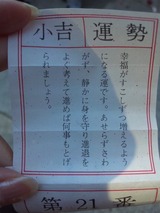 小吉 運勢
幸福がすこしずつ増えるよう
になる運です。あせらずさわ
がず、静かに身を守り進退を
よく考えて進めば何事もとげ
られましょう。
第21番